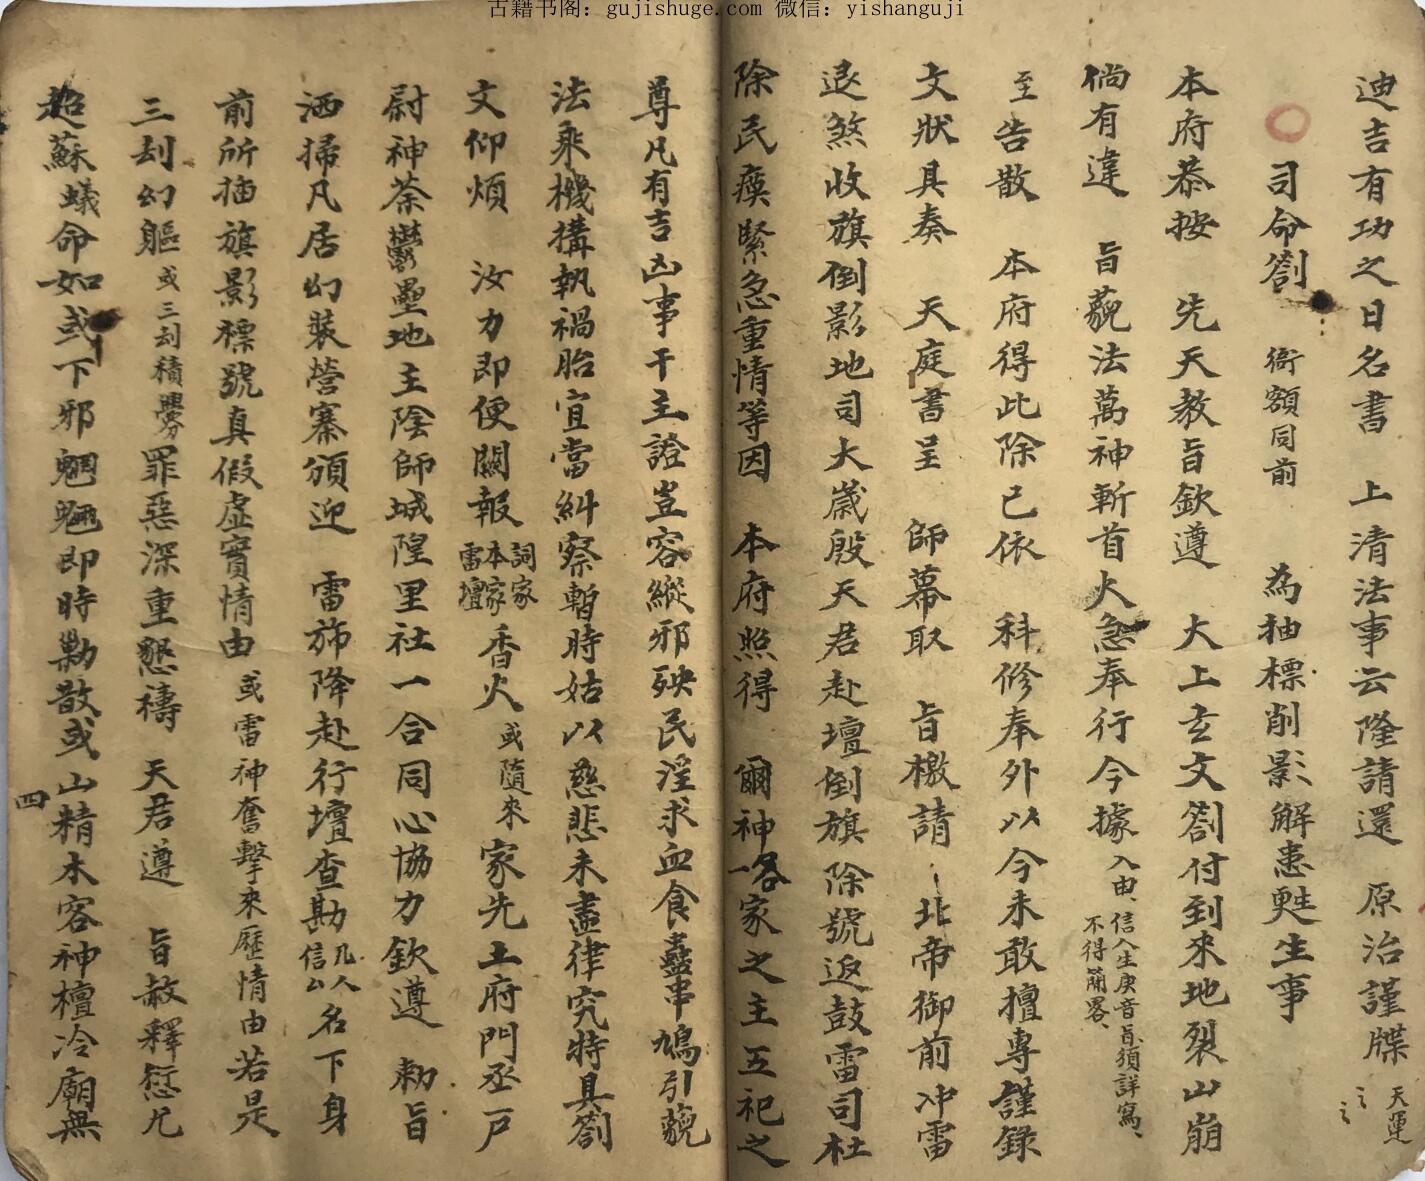 古籍书阁：gujishuge.com 微信：yishanguji
迪吉有功之日名書　上清法事云隆請還　原治謹牒　天運
司命劄　衙額同前　為抽標削影解患甦生事
本府恭按　先天教旨欽遵　大上玄文劄付到來地裂山崩
倘有違　旨藐法萬神斬首火急奉行今據入由、信人生庚音旨須詳寫、不得簡畧、
至告散　本府得此除已依　科修奉外以今未敢擅專謹錄
文狀具奏　天庭書呈　師幕取　旨檄請　北帝御前冲雷
退煞收旗倒影地司大歲殷天君赴壇倒旗除號返鼓雷司杜
除民瘼緊急重情等因　本府照得　爾神各一家之主五祀之
尊凡有吉凶事干主證豈容縱邪殃民淫求血食蠱串鳩引藐
法乘機搆執禍胎宜當糾察暫時姑以慈悲未盡律究特具劄
文仰煩　汝力即便關報詞家本家雷壇香火或隨來家先土府門丞戶
尉神荼鬱壘地主陰師城隍里社一合同心協力欽遵　勅旨
洒掃凡居幻裝營寨頒迎　雷斾降赴行壇查勘信凡人名下身
前所插旗影標號真假虛實情由或雷神奮擊來歷情由若是
三刦幻軀或三刦積釁罪惡深重懇禱　天君遵　旨赦釋愆尤
超蘇蟻命如或下邪魍魎即時勦散或山精木容神檀冷廟無
四